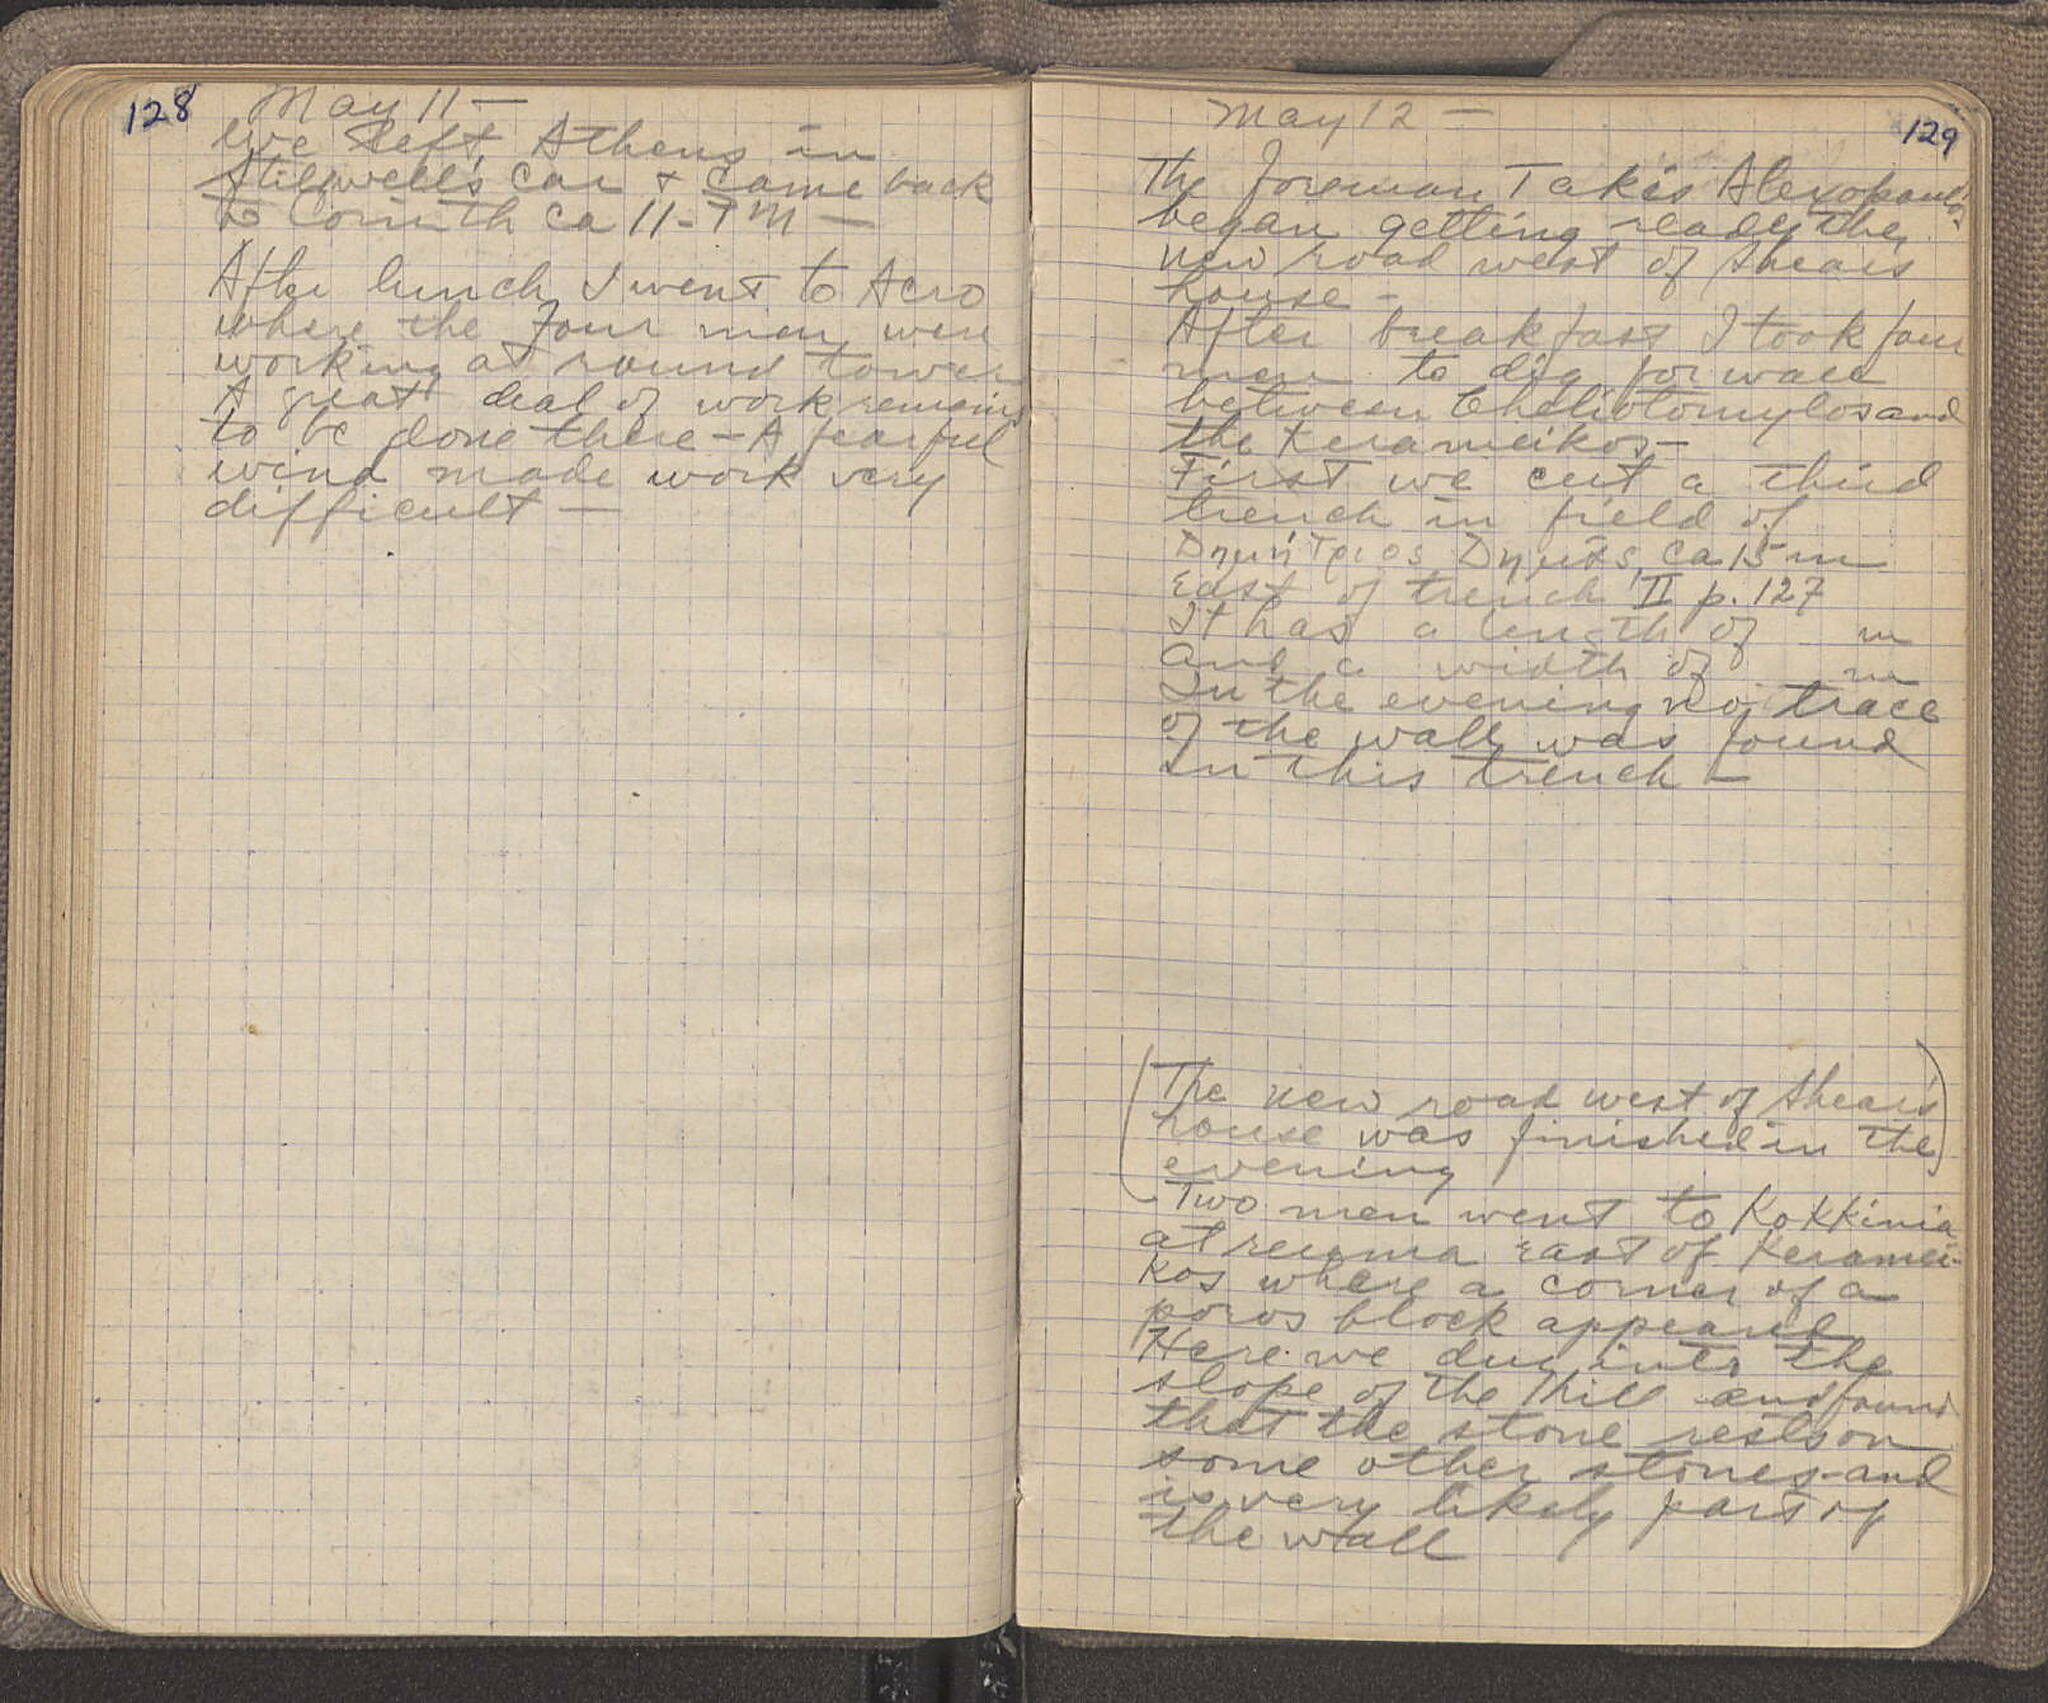 128
May 11 —
We left Athens in
Stillwell's car + came back
to Corinth ca 11-
After lunch I went to Acro
where the four men were
working at round tower
A great deal of work remains
to be done there — A fearful
wind made work very
difficult —
129
May 12 —
The foreman Takis Alexopoulos
began getting ready the
new road west of Shear's
house —
After breakfast I took four
men to dig for wall
between Cheliotomylos and
the Kerameikos —
First we cut a third
trench in field of
Δημήτριος Δημᾶς, ca 15 m
East of trench II p. 127
It has a length of m
and a width of m
In the evening no trace
of the wall was found
in this trench —
(The new road west of Shear's
house was finished in the
evening)
Two men went to Kokkinia
at reuma East of Keramei-
kos where a corner of a
poros block appeared
Here we dug into the
slope of the hill and found
that the stone rests on
some other stones and
is very likely part of
the wall